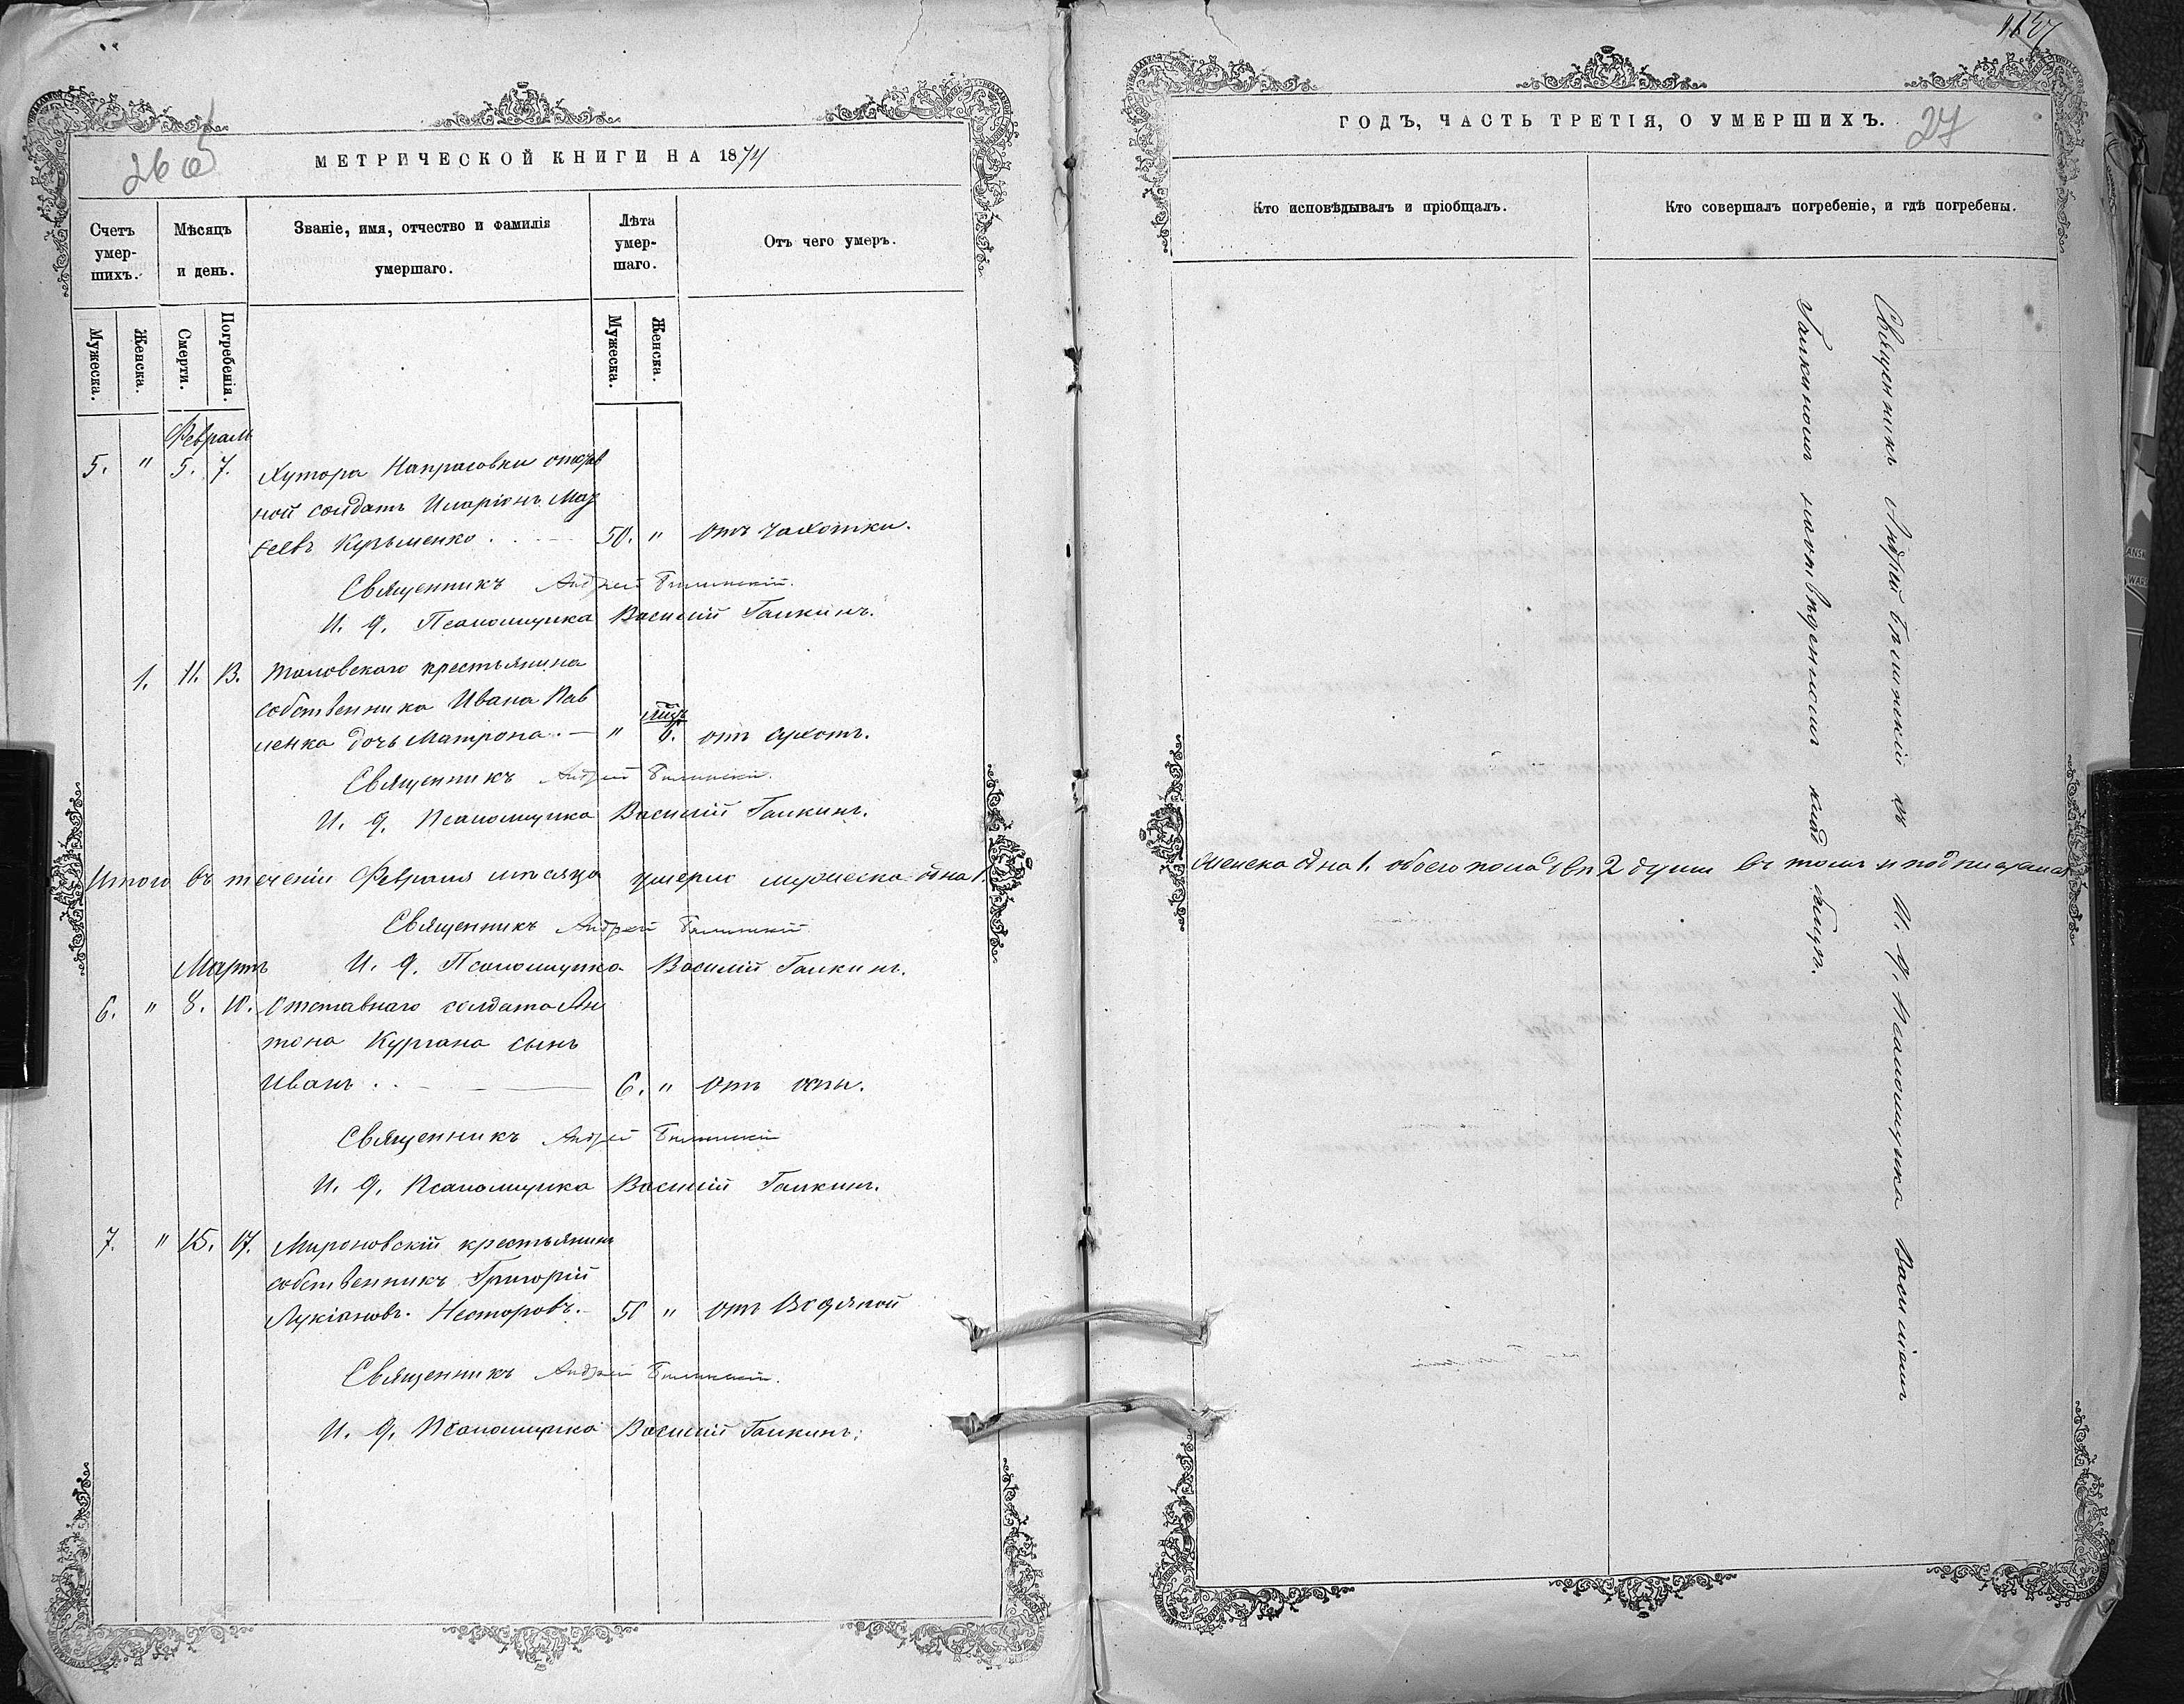 26 об
МЕТРИЧЕСКОЙ КНИГИ НА 1874
Счетъ умер-шихъ.
Мѣсяцъ и день.
Званіе, имя, отчество и фамилія умершаго.
Лѣта умер-шаго.
Отъ чего умеръ.
Мужеска.
Женска.
Смерти.
Погребенія.
Мужеска.
Женска.
Февраль
5. " 5. 7. Хутора отстав
ной солдатъ Иларіонъ Мат
феевъ Кузьменко. 50. " отъ чахотки.
Священникъ Андрей
И. д. Псаломщика Василій Галкинъ.
1. 11. 13. крестьянина
собственника Ивана Пав
ленка дочь Матрона. "
6. отъ
Священникъ Андрей
И. д. Псаломщика Василій Галкинъ.
Итого въ теченіи Февраля мѣсяца умерло мужеска одна 1.
Священникъ Андрей
И. д. Псаломщика Василій Галкинъ.
Мартъ
6. " 8. 10. Отставнаго солдата Ан
тона Кургана сынъ
Иванъ. 6. " Отъ оспы.
Священникъ Андрей
И. д. Псаломщика Василій Галкинъ.
7. " 15. 17. Мироновскій крестьянинъ
собственникъ Григорій
Лукіановъ Несторовъ. 50 " отъ Водяной
Священникъ Андрей
И. д. Псаломщика Василій Галкинъ.
27
ГОДЪ, ЧАСТЬ ТРЕТІЯ, О УМЕРШИХЪ.
Кто исповѣдывалъ и пріобщалъ.
Кто совершалъ погребеніе, и гдѣ погребены.
Священникъ Андрей съ И. д. Псаломщика Василіемъ
Галкинымъ на отведенномъ кладбищѣ.
женска одна 1. обоего пола двѣ 2 души въ томъ и подписуемся